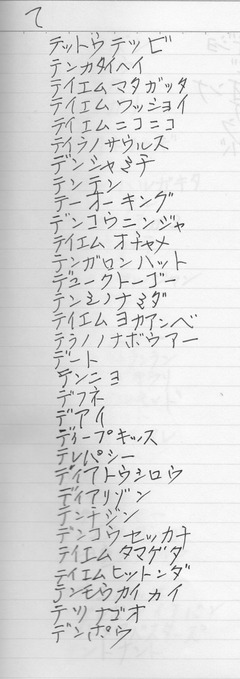 て
デットウテッピ
テンカタイヘイ
テイエムマタガッタ
テイエムワッショイ
テイエムニコニコ
テイラノサウルス
デンシャミチ
テンテン
テーオーキング
デンコウニンジャ
テイエムオチャメ
テンガロンハット
デュークトーゴー
テンシノナミダ
テイエムヨカアンベ
テラノノナボウアー
デート
テンニョ
デフネ
デアイ
ディープキッス
テレパシー
デイアトウシロウ
ディアリゾン
テンナジン
デンコウセッカチ
テイエムタマゲタ
テイエムヒットンダ
テンモウカイカイ
テツナゴオ
デンポウ